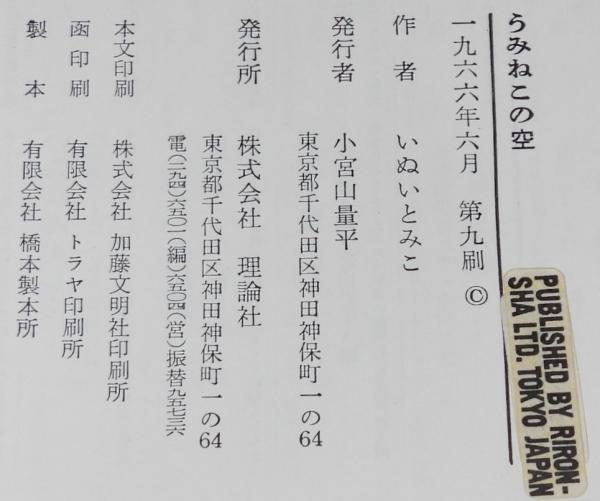 うみねこの空
一九六六年六月 第九刷 Ⓒ
作者 いぬいとみこ
発行者 小宮山量平
東京都千代田区神田神保町一の64
発行所 株式会社 理論社
東京都千代田区神田神保町一の64
電(二九四)六五〇一(編)六五〇四(営)振替九五七三六
本文印刷 株式会社 加藤文明社印刷所
函印刷 有限会社 トラヤ印刷所
製本 有限会社 橋本製本所
PUBLISHED BY RIRON-
SHA LTD. TOKYO JAPAN